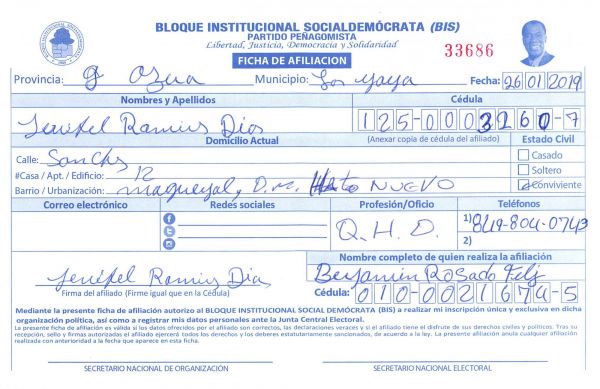 BLOQUE INSTITUCIONAL SOCIALDEMÓCRATA (BIS)
PARTIDO PEÑAGOMISTA
Libertad, Justicia, Democracia y Solidaridad
FICHA DE AFILIACION
33686
Provincia: Municipio: Los Fecha: 26/01/2019
Nombres y Apellidos Cédula
Ramirs Dios 125-0003260-7
Domicilio Actual (Anexar copia de cédula del afiliado)
Calle: Estado Civil
Casado
#Casa / Apt. / Edificio: 12 Soltero
Barrio / Urbanización: magueyal, D.M. Hato NUEVO Conviviente
Correo electrónico Redes sociales Profesión/Oficio Teléfonos
Q.H.D. 1) 849-804-0743
2)
Nombre completo de quien realiza la afiliación
Ramirs Dios Benjamin Rosado Feliz
Firma del afiliado (Firme igual que en la Cédula) Cédula: 010-0021674-5
Mediante la presente ficha de afiliación autorizo al BLOQUE INSTITUCIONAL SOCIAL DEMÓCRATA (BIS) a realizar mi inscripción única y exclusiva en dicha
organización política, así como a registrar mis datos personales ante la Junta Central Electoral.
La presente ficha de afiliación es válida si los datos ofrecidos por el afiliado son correctos, las declaraciones veraces y si el afiliado tiene el disfrute de sus derechos civiles y políticos. Tras su
recepción, sello y firmas autorizadas el afiliado ejercerá todos los derechos y los deberes estatutariamente sancionados, de acuerdo a la ley. La presente afiliación anula cualquier afiliación
realizada con anterioridad a la fecha que aparece en esta ficha.
SECRETARIO NACIONAL DE ORGANIZACIÓN SECRETARIO NACIONAL ELECTORAL